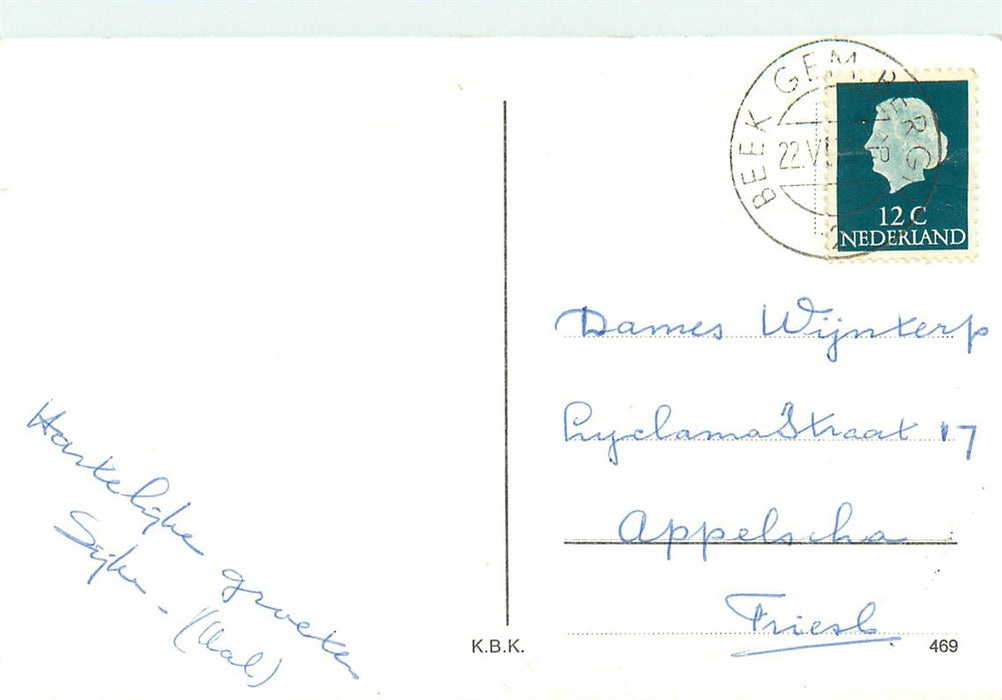 BEEK GEM. BERG
22.VI
12 C
NEDERLAND
Dames Wijnterp
Lyclamastraat 17
Appelscha
Friesl.
Hartelijke groeten
Sijke - (Ual)
K.B.K.
469